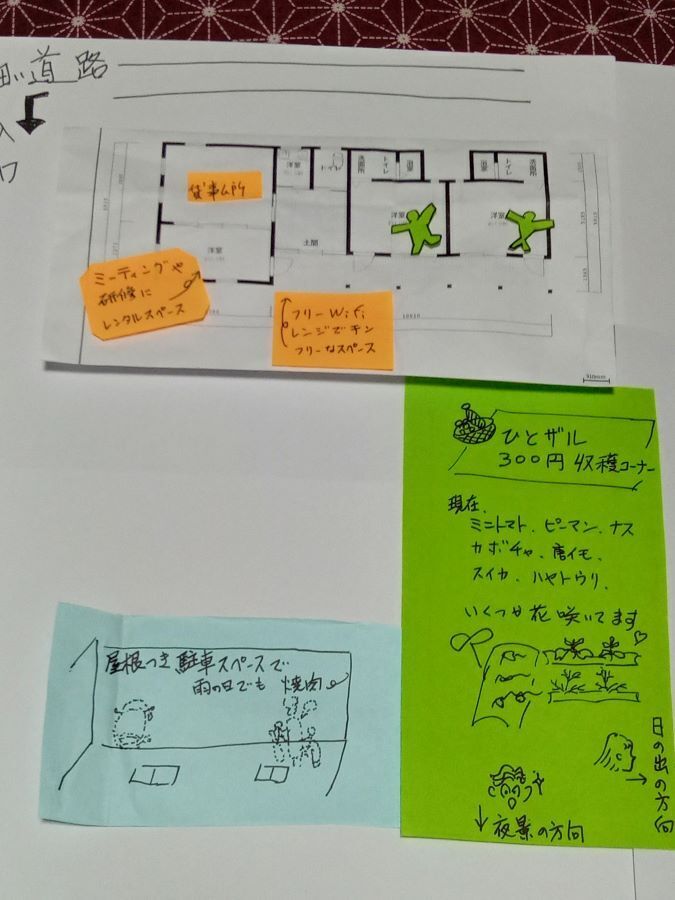 道路
貸事ム所
洋室
トイレ
洗面所
トイレ
浴室
浴室
トイレ
洗面所
洋室
洋室
洋室
土間
ミーティングや
研修に
レンタルスペース
フリーWifi
レンジでチン
フリーなスペース
ひとザル
300円 収穫コーナー
現在、
ミニトマト、ピーマン、ナス
カボチャ、唐イモ、
スイカ、ハヤトウリ、
いくつか花 咲いてます
日の出の方向
夜景の方向
屋根つき駐車スペースで
雨の日でも 焼肉